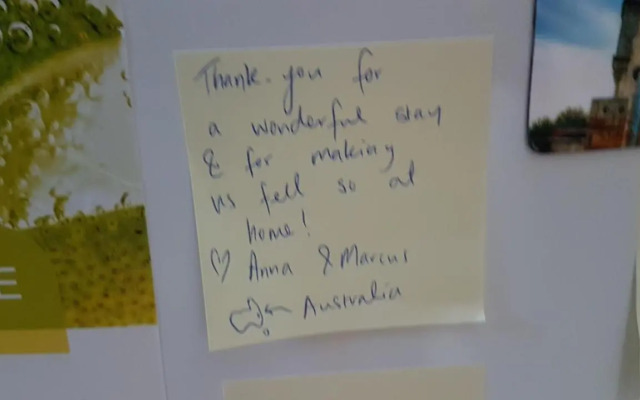 Thank you for
a wonderful stay
& for making
us fell so at
home!
♡ Anna & Marcus
Australia
E